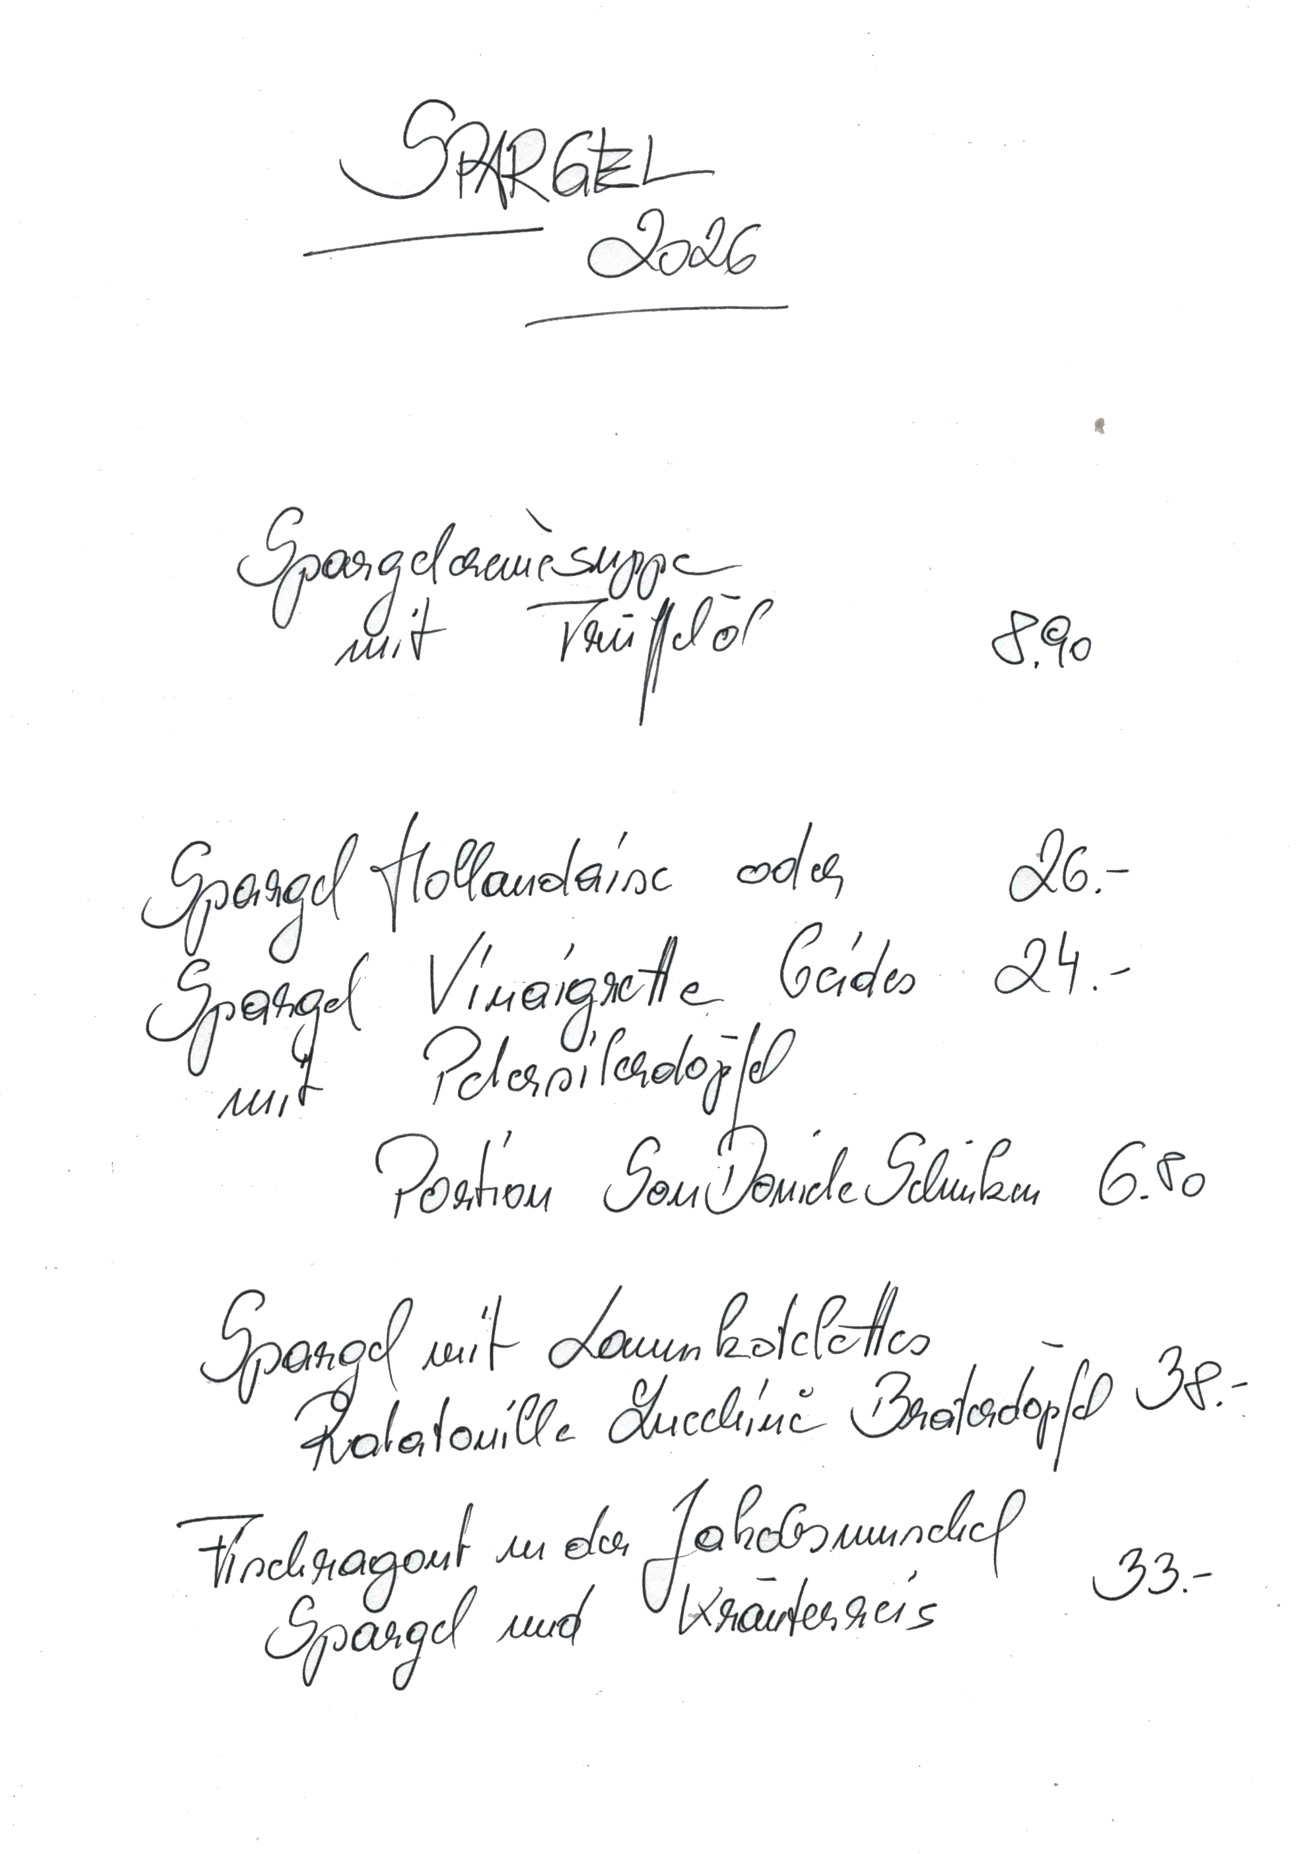 SPARGEL
2026
Spargelcremèsuppe
mit Trüffelöl 8.90
Spargel Hollandaise oder 26.-
Spargel Vinaigrette beides 24.-
mit Petersilerdöpfel
Portion San Daniele Schinken 6.80
Spargel mit Lammkotelettes
Ratatouille Zucchini Braterdöpfel 38.-
Fischragout in der Jakobsmuschel
33.-
Spargel und Kräuterreis